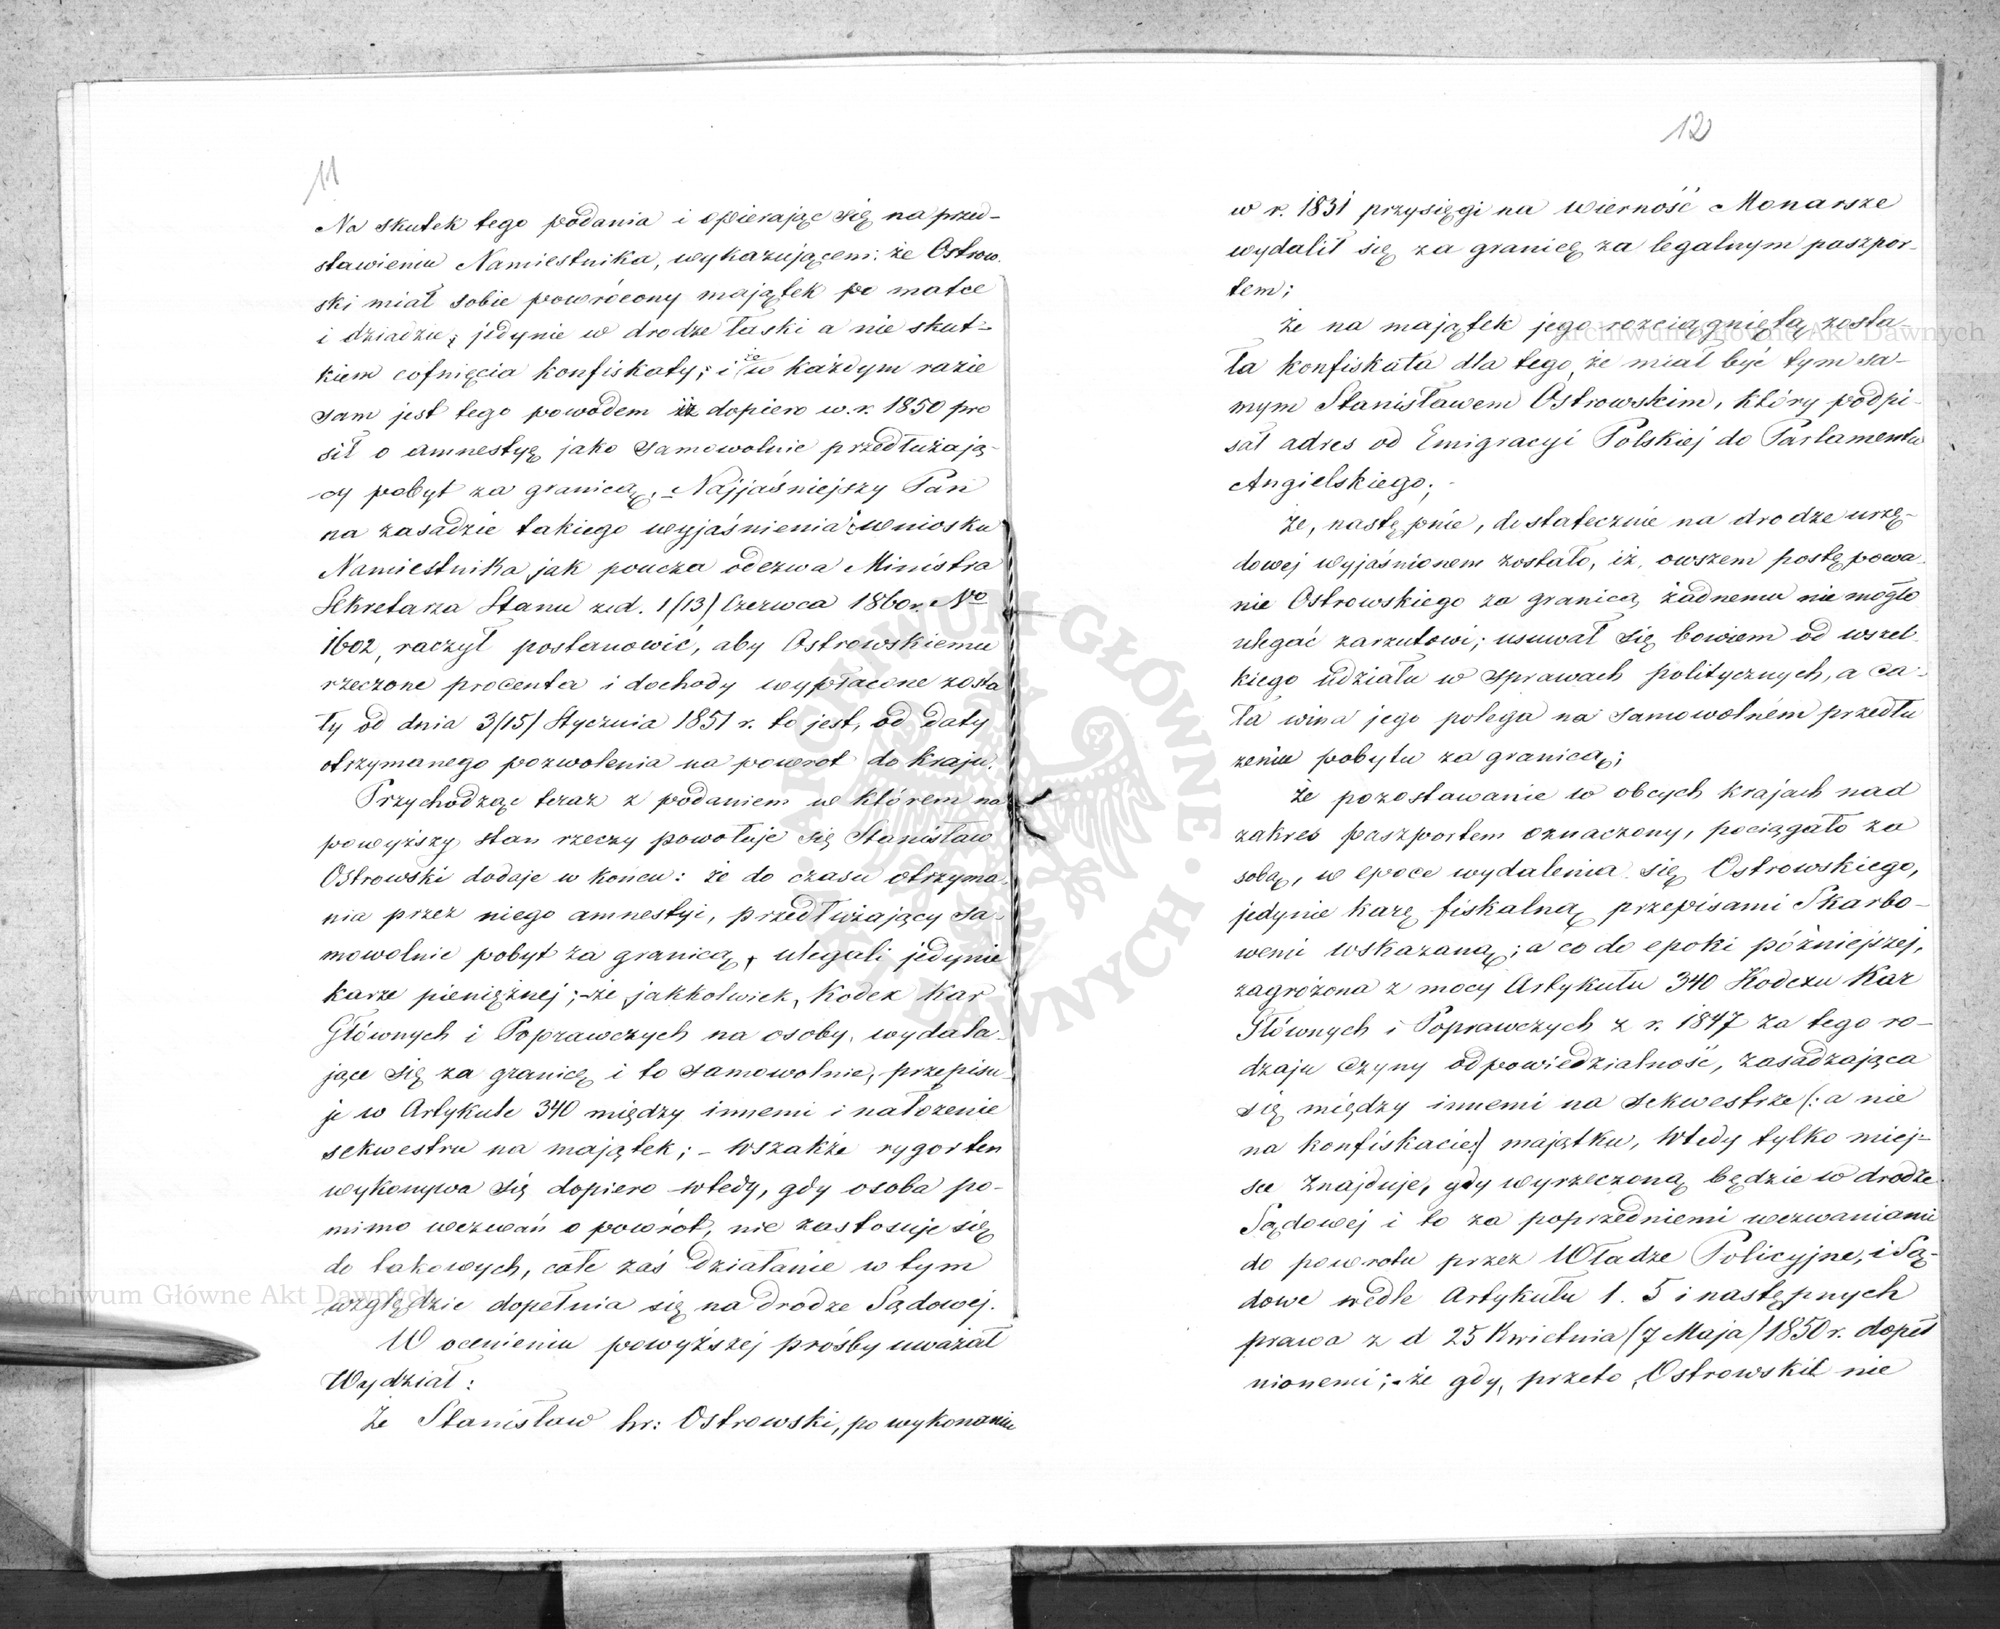 11
Na skutek tego podania i opierając się na przed-
stawieniu Namiestnika, wykazującem: że Ostrow-
ski miał sobie powrócony majątek po matce
i dziadzie; jedynie w drodze łaski a nie skut-
kiem cofnięcia konfiskaty; i że w każdym razie
sam jest tego powodem iż dopiero w r. 1850 pro
sił o amnestyę jako samowolnie przedłużają-
cy pobyt za granicą, - Najjaśniejszy Pan
na zasadzie takiego wyjaśnienia i wniosku
Namiestnika, jak poucza odezwa Ministra
Sekretarza Stanu z d. 1/13/ Czerwca 1860 r. No
1602, raczył postanowić, aby Ostrowskiemu
rzeczone procenta i dochody wypłacone zosta
ły od dnia 3/15/ Stycznia 1851 r. to jest, od daty
otrzymanego pozwolenia na powrót do kraju.
Przychodząc teraz z podaniem w którem na
powyższy stan rzeczy powołuje się Stanisław
Ostrowski dodaje w końcu: że do czasu otrzyma-
nia przez niego amnestyi, przedłużający sa-
mowolnie pobyt za granicą, ulegali jedynie
karze pieniężnej; - że jakkolwiek, Kodex Kar
Głównych i Poprawczych na osoby, wydala-
jące się za granicę i to samowolnie, przepisu-
je w Artykule 340 między innemi i nałożenie
sekwestru na majątek; - wszakże rygor ten
wykonywa się dopiero wtedy, gdy osoba po-
mimo wezwań o powrót, nie zastosuje się
do takowych, całe zaś działanie w tym
względzie dopełnia się na drodze Sądowej.
W ocenieniu powyższej prośby uważał
Wydział:
Że Stanisław hr: Ostrowski, po wykonaniu
12
w r. 1831 przysięgi na wierność Monarsze
wydalił się za granicę za legalnym paszpor-
tem;
że na majątek jego rozciągniętą zosta-
ła konfiskata dla tego, że miał być tym sa-
mym Stanisławem Ostrowskim, który podpi-
sał adres od Emigracyi Polskiej do Parlamentu
Angielskiego;
że, następnie, dostatecznie na drodze urzę-
dowej wyjaśnionem zostało, iż, owszem postępowa-
nie Ostrowskiego za granicą żadnemu nie mogło
ulegać zarzutowi; usuwał się bowiem od wszel-
kiego udziału w sprawach politycznych, a ca-
ła wina jego polega na samowolném przedłu
żeniu pobytu za granicą;
że pozostawanie w obcych krajach nad
zakres paszportem oznaczony, pociągało za
sobą, w epoce wydalenia się Ostrowskiego,
jedynie karę fiskalną przepisami Skarbo-
wemi wskazaną; a co do epoki późniejszej,
zagrożona z mocy Artykułu 340 Kodexu Kar
Głównych i Poprawczych z r. 1847 za tego ro-
dzaju czyny odpowiedzialność, zasadzająca
się między innemi na sekwestrze (: a nie
na konfiskacie:) majątku, wtedy tylko miej-
sce znajduje, gdy wyrzeczoną będzie w drodze
Sądowej i to za poprzedniemi wezwaniami
do powrotu przez Władze Policyjne, i Są-
dowe wedle Artykułu 1. 5 i następnych
prawa z d 25 Kwietnia (7 Maja) 1850 r. dopeł
nionemi; - że gdy, przeto, Ostrowski nie
Archiwum Główne Akt Dawnych
Archiwum Główne Akt Dawnych
ARCHIWUM GŁÓWNE AKT DAWNYCH